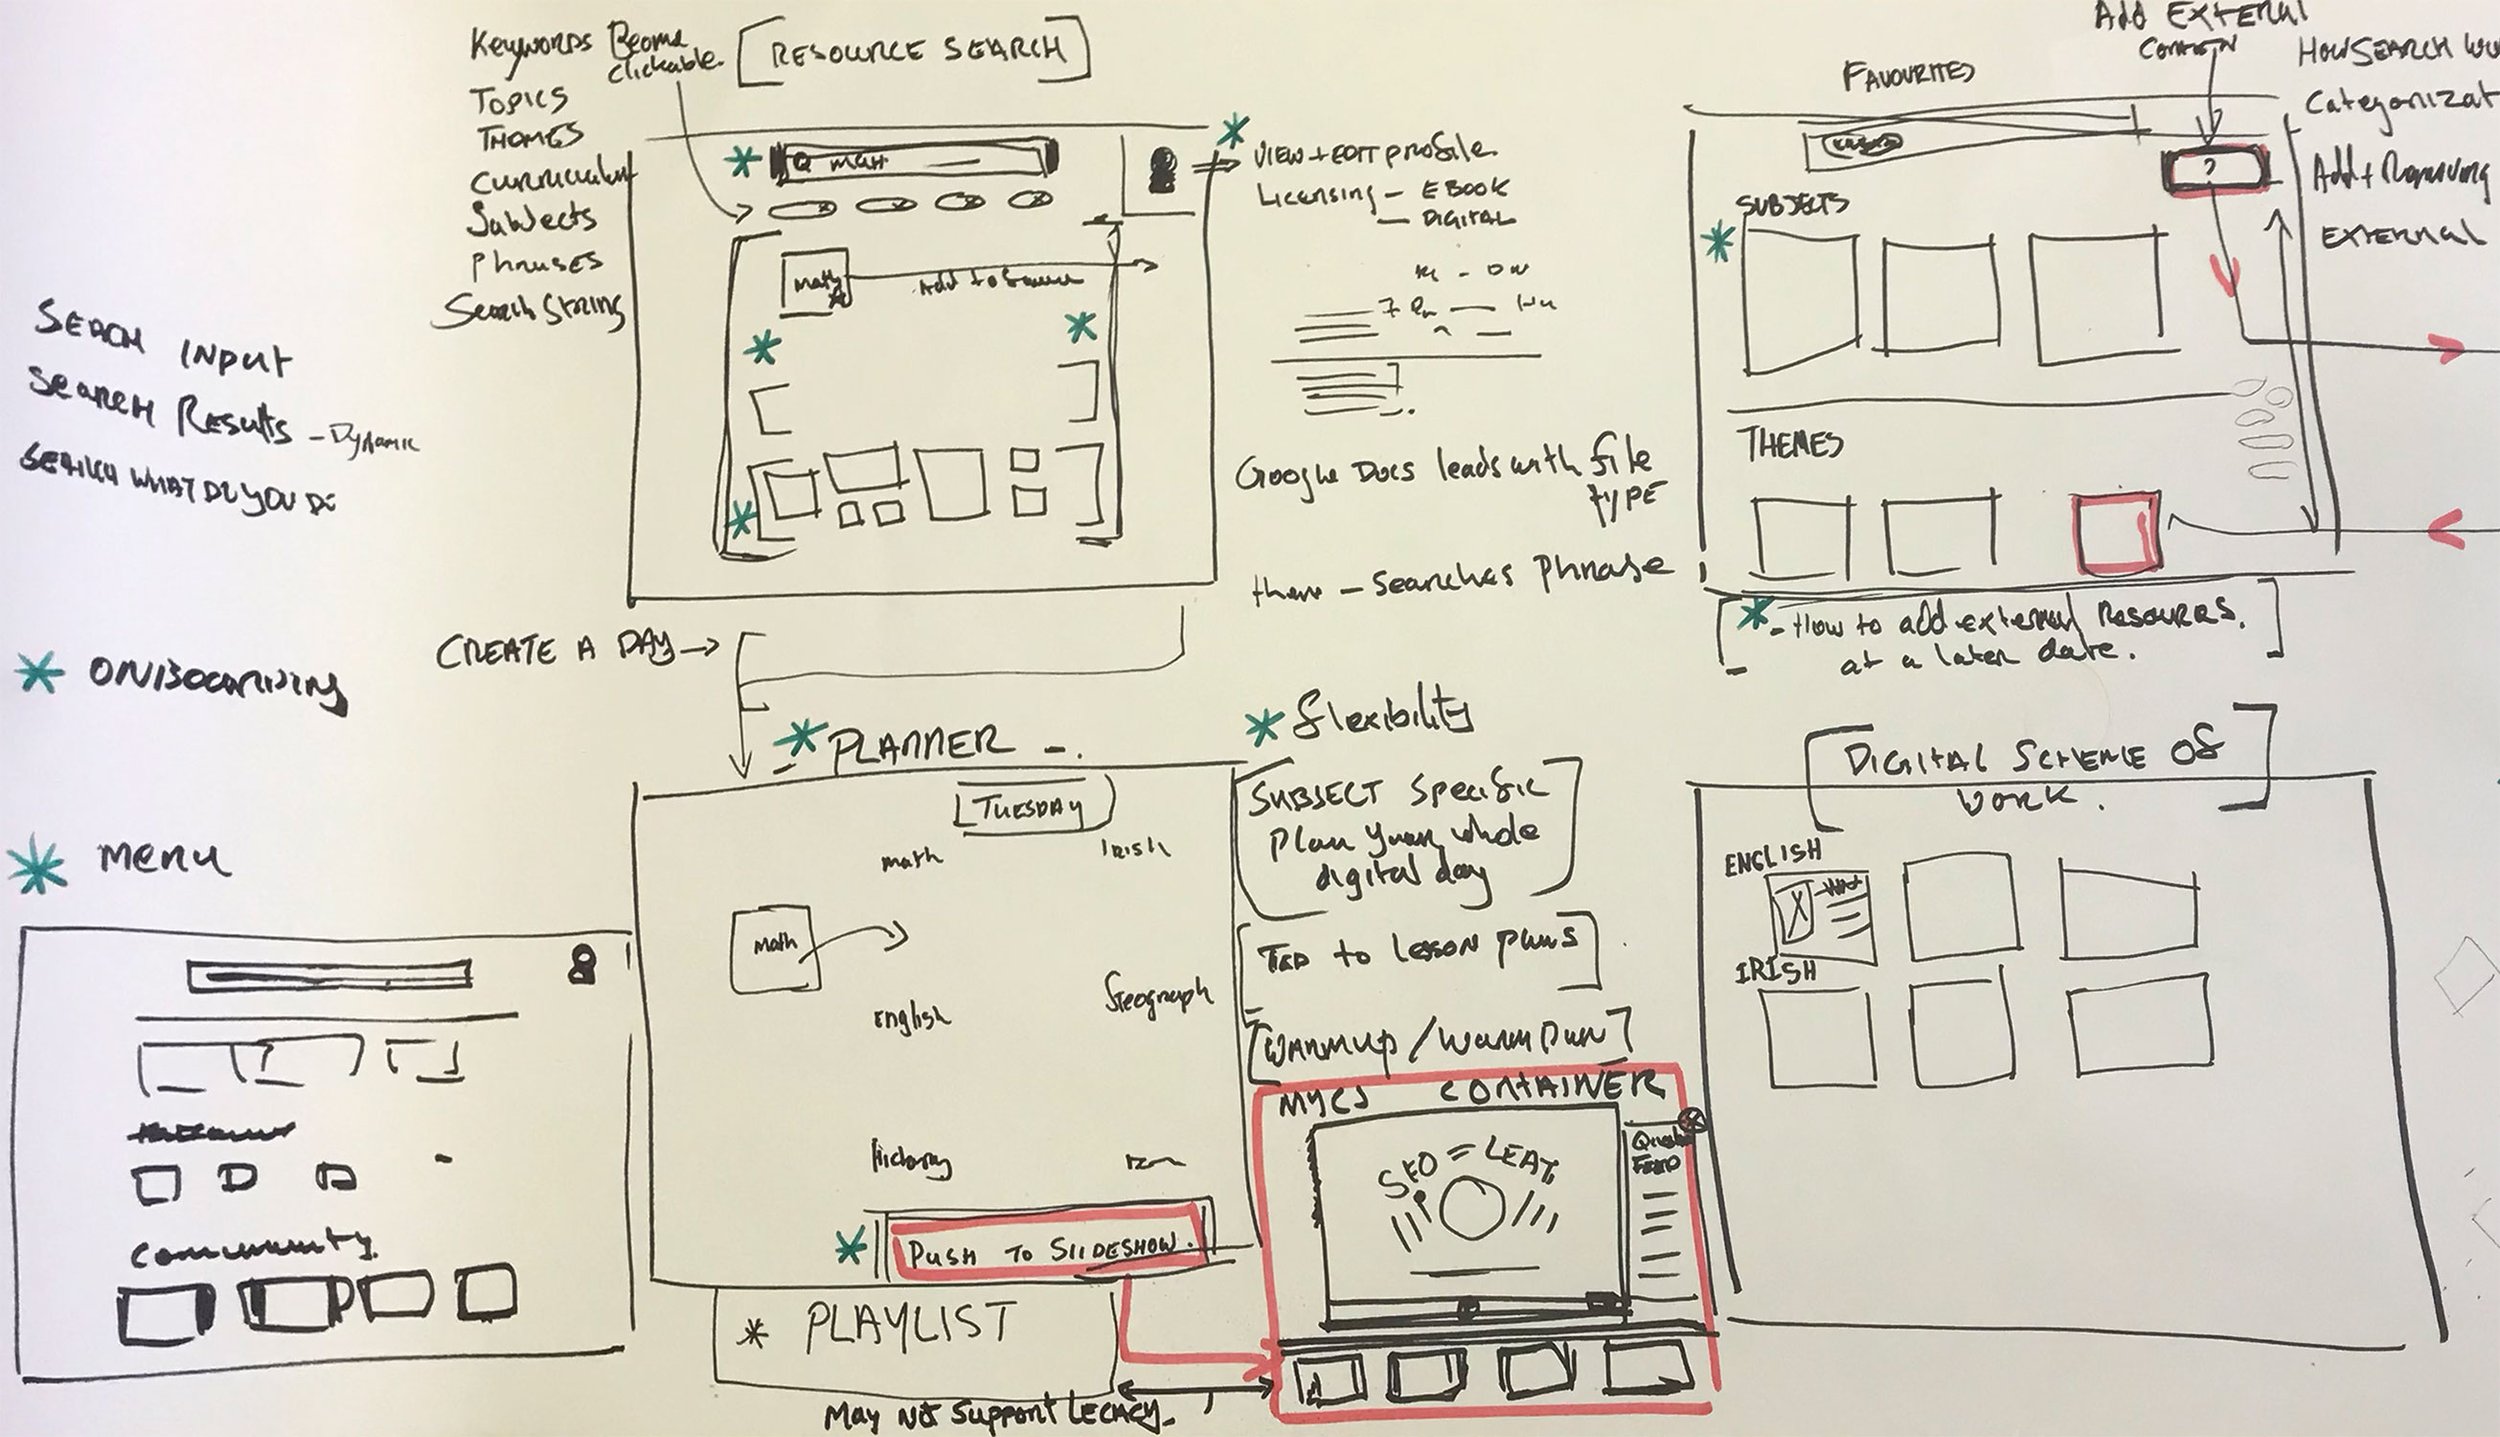 Keywords Become
clickable.
[RESOURCE SEARCH]
TOPICS
THEMES
Curriculum
Subjects
Phrases
Search String
Q MATH
VIEW + EDIT profile.
Licensing - EBOOK
- DIGITAL
Math
Add to
SEARCH INPUT
SEARCH RESULTS - Dynamic
SEARCH WHAT DO YOU DO
Google Docs leads with file
TYPE
then - Searches Phrase
Add EXTERNAL
FAVOURITES
HOW SEARCH
Categorizat
Add + Removing
EXTERNAL
?
SUBJECTS
THEMES
- How to add external Resources.
at a later date.
CREATE A DAY →
* ONBOARDING
* PLANNER -.
[TUESDAY]
math
Irish
math
English
Geograph
History
* PUSH TO SlIDESHOW.
* PLAYLIST
May Not Support LEGACY.
* Flexibility
SUBJECT Specific
Plan your whole
digital day
to Lesson Plans
[Warmup / Warm Down]
CONTAINER
SEO =
DIGITAL SCHEME OF
WORK.
ENGLISH
IRISH
* menu
Community